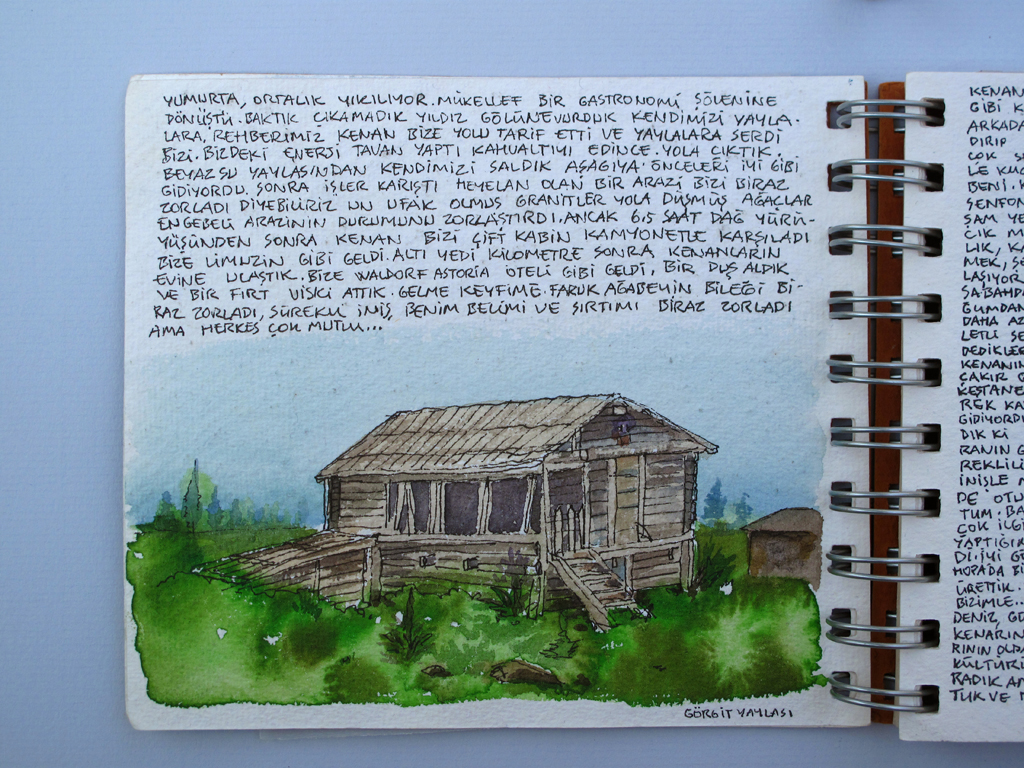 YUMURTA, ORTALIK YIKILIYOR. MÜKELLEF BİR GASTRONOMİ ŞÖLENİNE
DÖNÜŞTÜ. BAKTIK ÇIKAMADIK YILDIZ GÖLÜNE VURDUK KENDİMİZİ YAYLA-
LARA, REHBERİMİZ KENAN BİZE YOLU TARİF ETTİ VE YAYLALARA SERDİ
BİZİ. BİZDEKİ ENERJİ TAVAN YAPTI KAHVALTIYI EDİNCE. YOLA ÇIKTIK.
BEYAZSU YAYLASINDAN KENDİMİZİ SALDIK AŞAĞIYA. ÖNCELERİ İYİ GİBİ
GİDİYORDU. SONRA İŞLER KARIŞTI HEYELAN OLAN BİR ARAZİ BİZİ BİRAZ
ZORLADI DİYEBİLİRİZ UN UFAK OLMUŞ GRANİTLER YOLA DÜŞMÜŞ AĞAÇLAR
ENGEBELİ ARAZİNİN DURUMUNU ZORLAŞTIRDI. ANCAK 6.5 SAAT DAĞ YÜRÜ-
YÜŞÜNDEN SONRA KENAN BİZİ ÇİFT KABİN KAMYONETLE KARŞILADI
BİZE LİMUZİN GİBİ GELDİ. ALTI YEDİ KİLOMETRE SONRA KENANLARIN
EVİNE ULAŞTIK. BİZE WALDORF ASTORIA OTELİ GİBİ GELDİ. BİR DUŞ ALDIK
VE BİR FIRT VİSKİ ATTIK. GELME KEYFİME. FARUK AĞABEYİN BİLEĞİ Bİ-
RAZ ZORLADI, SÜREKLİ İNİŞ, BENİM BELİMİ VE SIRTIMI BİRAZ ZORLADI
AMA HERKES ÇOK MUTLU...
GÖRGİT YAYLASI
KENAN
GİBİ
ARKADA
DİRİP
ÇOK
LE
BENİ.
ŞENFON
ŞAM YE
CIK
LIK,
MEK,
LAŞIYOR
SABAHD
GUMDAN
DAHA AZ
LETLİ
DEDİKLE
KENANIN
ÇAKIR
KESTANE
REK
GİDİYORD
DIK Kİ
RANIN
REKLİLİ
İNİŞLE
DE OTU
TUM.
ÇOK İLG
YAPTIĞI
DI. İYİ
HOPA'DA
ÜRETTİK.
BİZİMLE...
DENİZ,
KENARIN
RININ OLD
KÜLTÜR
RADIK
TUK VE